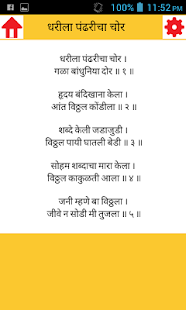 100%
11:52 PM
धरीला पंढरीचा चोर
धरीला पंढरीचा चोर ।
गळा बांधुनिया दोर ॥ १ ॥
हृदय बंदिखाना केला ।
आंत विठ्ठल कोंडीला ॥ २ ॥
शब्दे केली जडाजुडी ।
विठ्ठल पायी घातली बेडी ॥ ३ ॥
सोहम शब्दाचा मारा केला ।
विठ्ठल काकुळती आला ॥ ४ ॥
जनी म्हणे बा विठ्ठला ।
जीवे न सोडी मी तुजला ॥ ५ ॥